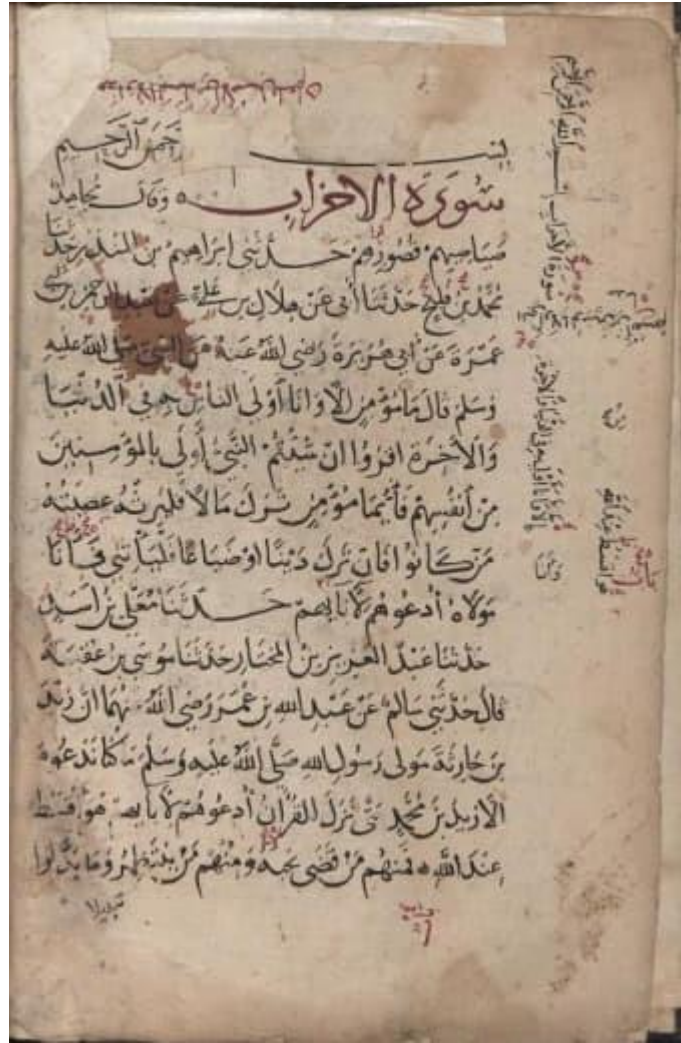 بسم الرحمن الرحيم
سورة الاحزاب وقال مجاهد
صياصيهم قصورهم حدثني ابراهيم بن المنذر حدثنا
محمد بن فليح حدثنا أبي عن هلال بن علي عن عبد الرحمن بن أبي
عمرة عن أبي هريرة رضي الله عنه عن النبي صلى الله عليه
وسلم قال ما مؤمن الا وانا أولى الناس به في الدنيا
والآخرة اقرؤا ان شئتم النبي أولى بالمؤمنين
من أنفسهم فأيما مؤمن ترك مالا فليرثه عصبته
من كانوا فان ترك دينا او ضياعا فليأتني فانا
مولاه أدعوهم لآبائهم حدثنا معلى بن أسد
حدثنا عبد العزيز بن المختار حدثنا موسى بن عقبة
قال حدثني سالم عن عبد الله بن عمر رضي الله عنهما ان زيد
بن حارثة مولى رسول الله صلى الله عليه وسلم ما كنا ندعوه
الا زيد بن محمد حتى نزل القرآن أدعوهم لآبائهم هو أقسط
عند الله فمنهم من قضى نحبه ومنهم من ينتظر وما بدلوا
تبديلا
باب
بسم الله الرحمن الرحيم
سورة الاحزاب
هو اقسط عند الله